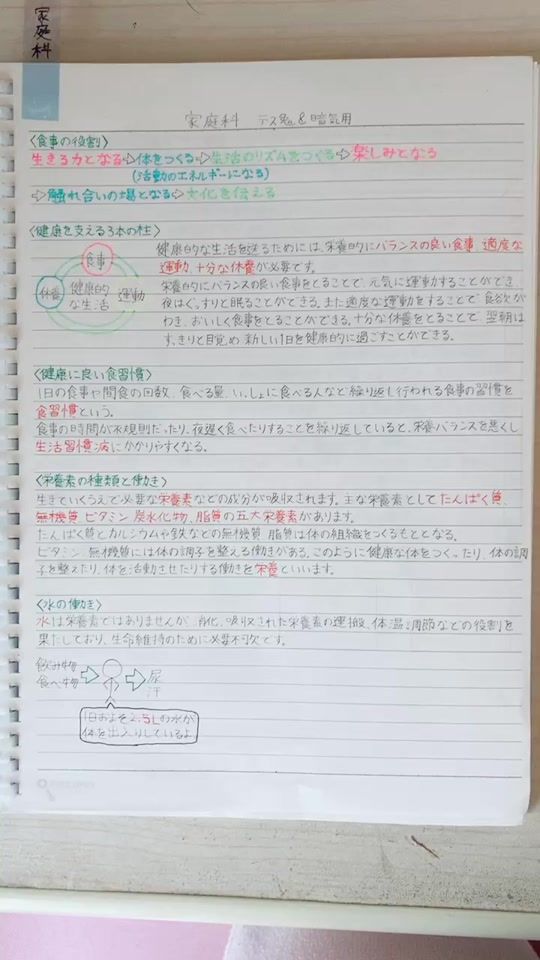 家庭科
家庭科 テス勉&暗気用
〈食事の役割〉
生きる力となる⇨体をつくる⇨生活のリズムをつくる⇨楽しみとなる
(活動のエネルギーになる)
⇨触れ合いの場となる⇨文化を伝える
〈健康を支える3本の柱〉
食事
休養 健康的な生活 運動
健康的な生活を送るためには、栄養的にバランスの良い食事、適度な
運動、十分な休養が必要です。
栄養的にバランスの良い食事をとることで、元気に運動することができ、
夜はぐっすりと眠ることができる。また適度な運動をすることで、食欲が
わき、おいしく食事をとることができる。十分な休養をとることで、翌朝は
すっきりと目覚め、新しい1日を健康的に過ごすことができる。
〈健康に良い食習慣〉
1日の食事や間食の回数、食べる量、いっしょに食べる人など繰り返し行われる食事の習慣を
食習慣という。
食事の時間が不規則だったり、夜遅く食べたりすることを繰り返していると、栄養バランスを悪くし
生活習慣病にかかりやすくなる。
〈栄養素の種類と働き〉
生きていくうえで必要な栄養素などの成分が吸収されます。主な栄養素としてたんぱく質、
無機質、ビタミン、炭水化物、脂質の五大栄養素があります。
たんぱく質とカルシウムや鉄などの無機質、脂質は体の組織をつくるもととなる。
ビタミン、無機質には体の調子を整える働きがある。このように健康な体をつくったり、体の調
子を整えたり、体を活動させたりする働きを栄養といいます。
〈水の働き〉
水は栄養素ではありませんが、消化、吸収された栄養素の運搬、体温調節などの役割を
果たしており、生命維持のために必要不可欠です。
飲み物
食べ物
尿
汗
1日およそ2.5Lの水が
体を出入りしているよ